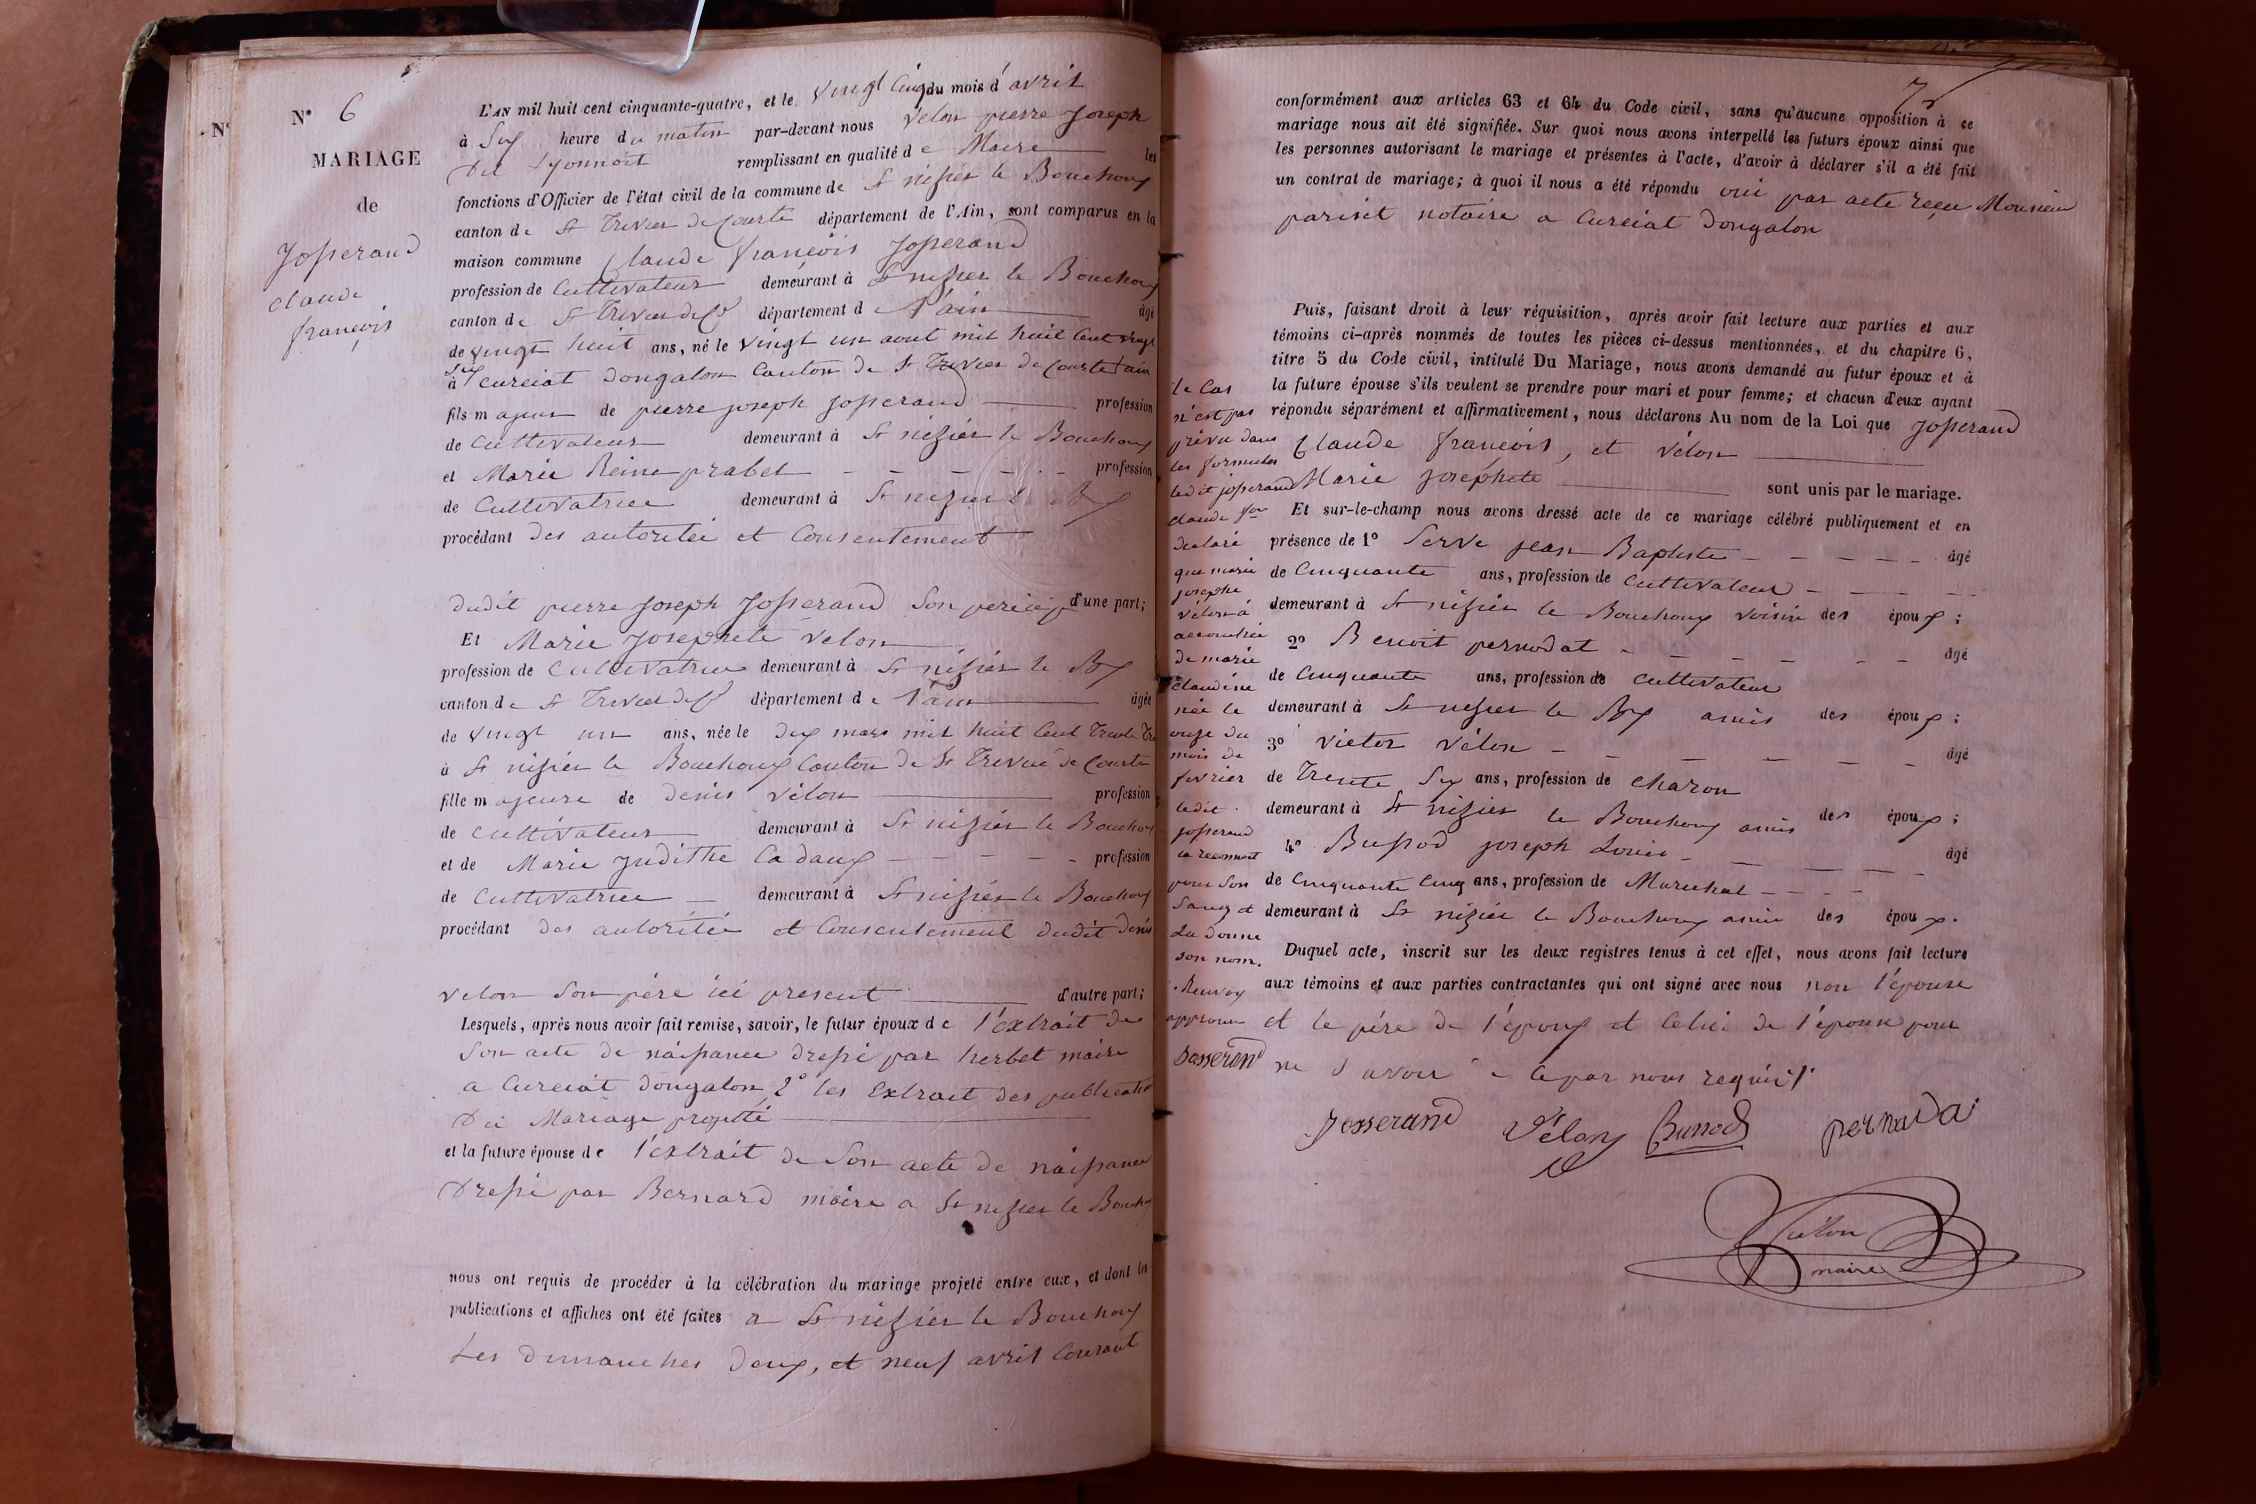 N° 6
MARIAGE
de
Josserand
claude
françois
L'AN mil huit cent cinquante-quatre, et le vingt cinq du mois d'avril
à Six heure du matin par-devant nous Vélon pierre Joseph
remplissant en qualité de Maire les
fonctions d'Officier de l'état civil de la commune de St nizier le Bouchoux
canton de St Trivier de Courte département de l'Ain, sont comparus en la
maison commune Claude françois Josserand
profession de Cultivateur demeurant à St nizier le Bouchoux
canton de St Trivier de Cs département de l'ain âgé
de vingt huit ans, né le vingt un aout mil huit cent vingt
six
à curciat dongalon Canton de St Trivier de Courte ain
fils majeur de pierre joseph Josserand profession
de Cultivateur demeurant à St nizier le Bouchoux
et Marie Reine prabel profession
de Cultivatrice demeurant à St nizier le Bx
procédant des autoritée et Consentement
dudit pierre Joseph Josserand Son pere ici p d'une part;
Et Marie Josephete Velon
profession de Cultivatrice demeurant à St nizier le Bx
canton de St Trivier de Cs département de l'ain âgée
de vingt un ans, née le dix mars mil huit cent Trente Tr
à St nizier le Bouchoux Canton de St Trivier de Courte
fille majeure de denis vélon profession
de cultivateur demeurant à St nizier le Bouchoux
et de Marie Judithe Cadaux profession
de Cultivatrice demeurant à St nizier le Bouchoux
procédant des autoritée et Consentement dudit Denis
velon Son père ici present d'autre part;
Lesquels, après nous avoir fait remise, savoir, le futur époux de l'extrait de
Son acte de naissance dressé par herbet maire
a Curciat dongalon, 2° les Extrait des publicatio
Du Mariage projetté
et la future épouse de l'extrait de Son acte de naissance
Dressé par Bernard maire a St nizier le Bouch
nous ont requis de procéder à la célébration du mariage projeté entre eux, et dont les
publications et affiches ont été faites a St nizier le Bouchoux
Les dimanches deux, et neuf avril Courant
conformément aux articles 63 et 64 du Code civil, sans qu'aucune opposition à ce
mariage nous ait été signifiée. Sur quoi nous avons interpellé les futurs époux ainsi que
les personnes autorisant le mariage et présentes à l'acte, d'avoir à déclarer s'il a été fait
un contrat de mariage; à quoi il nous a été répondu oui par acte reçu Monsieur
pariset notaire a Curciat Dongalon
Puis, faisant droit à leur réquisition, après avoir fait lecture aux parties et aux
témoins ci-après nommés de toutes les pièces ci-dessus mentionnées, et du chapitre 6,
titre 5 du Code civil, intitulé Du Mariage, nous avons demandé au futur époux et à
la future épouse s'ils veulent se prendre pour mari et pour femme; et chacun d'eux ayant
répondu séparément et affirmativement, nous déclarons Au nom de la Loi que Josserand
Claude françois, et vélon
Marie josephete sont unis par le mariage.
Et sur-le-champ nous avons dressé acte de ce mariage célébré publiquement et en
présence de 1° Serve jean Baptiste âgé
de Cinquante ans, profession de Cultivateur
demeurant à St nizier le Bouchoux voisin des époux;
2° Benoit pernodat âgé
de Cinquante ans, profession de Cultivateur
demeurant à St nizier le Bx amis des époux;
3° victor vélon âgé
de Trente Six ans, profession de charon
demeurant à St nizier le Bouchoux amis des époux;
4° Bussod joseph Louis âgé
de Cinquante Cinq ans, profession de Marechal
demeurant à St nizier le Bouchoux amis des époux.
Duquel acte, inscrit sur les deux registres tenus à cet effet, nous avons fait lecture
aux témoins et aux parties contractantes qui ont signé avec nous non l'épouse
et le père de l'époux et Celui de l'épouse pour
ne Savoir de Ce par nous requis
le Cas
n'est pas
prévu dans
les formules
ledit josserand
claude fois
déclaré
que marie
josephe
vélon a
accouchée
de marie
claudine
née le
onze du
mois de
fevrier
ledit
josserand
la reconnait
pour Son
Sang et
lui donne
son nom.
Renvoy
approuvé
Josserand
Josserand Vélon Bussod pernoda
Vélon
maire